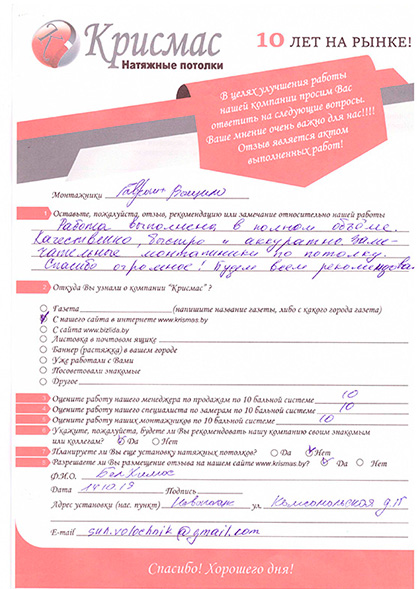 Крисмас
Натяжные потолки
10 ЛЕТ НА РЫНКЕ!
В целях улучшения работы
нашей компании просим Вас
ответить на следующие вопросы.
Ваше мнение очень важно для нас!!!!
Отзыв является актом
выполненных работ!
Монтажники Вадим
1 Оставьте, пожалуйста, отзыв, рекомендацию или замечание относительно нашей работы
Работа выполнена в полном объёме.
Качественно быстро и аккуратно. Заме-
чательные монтажники по потолку.
Спасибо огромное! Будем всем рекомендова.
2 Откуда Вы узнали о компании "Крисмас" ?
Газета (напишите название газеты, либо с какого города газета)
С нашего сайта в интернете www.krismas.by
С сайта www.bizlida.by
Листовка в почтовом ящике
Баннер (растяжка) в вашем городе
Уже работали с Вами
Посоветовали знакомые
Другое
3 Оцените работу нашего менеджера по продажам по 10 бальной системе 10
4 Оцените работу нашего специалиста по замерам по 10 бальной системе 10
5 Оцените работу наших монтажников по 10 бальной системе 10
6 Укажите, пожалуйста, будете ли Вы рекомендовать нашу компанию своим знакомым
или коллегам? Да Нет
7 Планируете ли Вы еще установку натяжных потолков? Да Нет
8 Разрешаете ли Вы размещение отзыва на нашем сайте www.krismas.by? Да Нет
Ф.И.О.
Дата 14.10.19 Подпись
Адрес установки (нас. пункт) ул. Комсомольская
E-mail sun.volochnik@gmail.com
Спасибо! Хорошего дня!